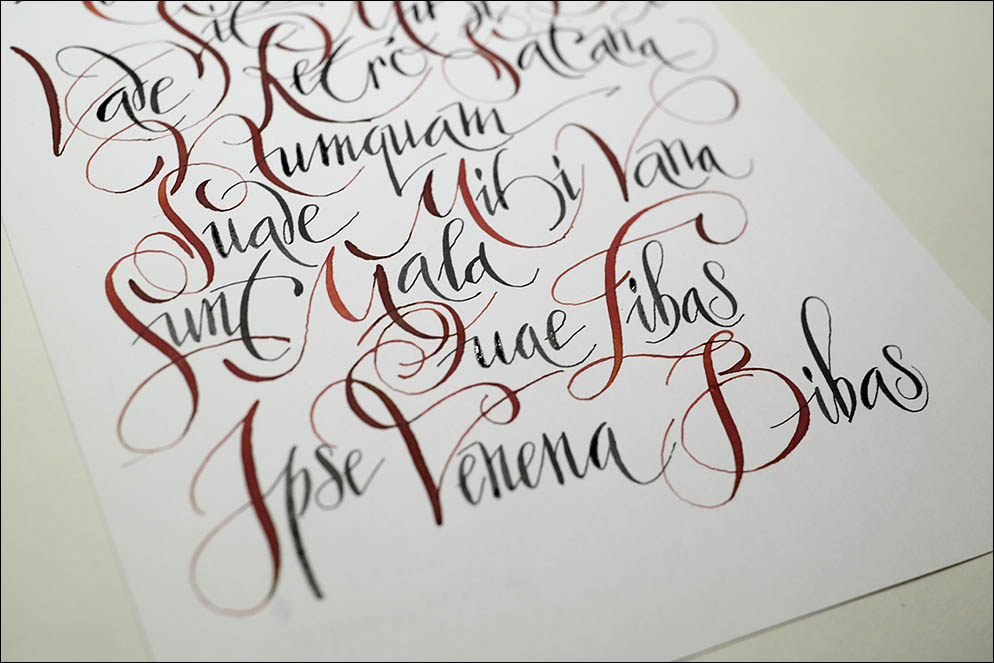 Sit Mihi D
Vade Retro Satana
Numquam
Suade Mihi Vana
Sunt Mala
Quae Libas
Ipse Venena Bibas